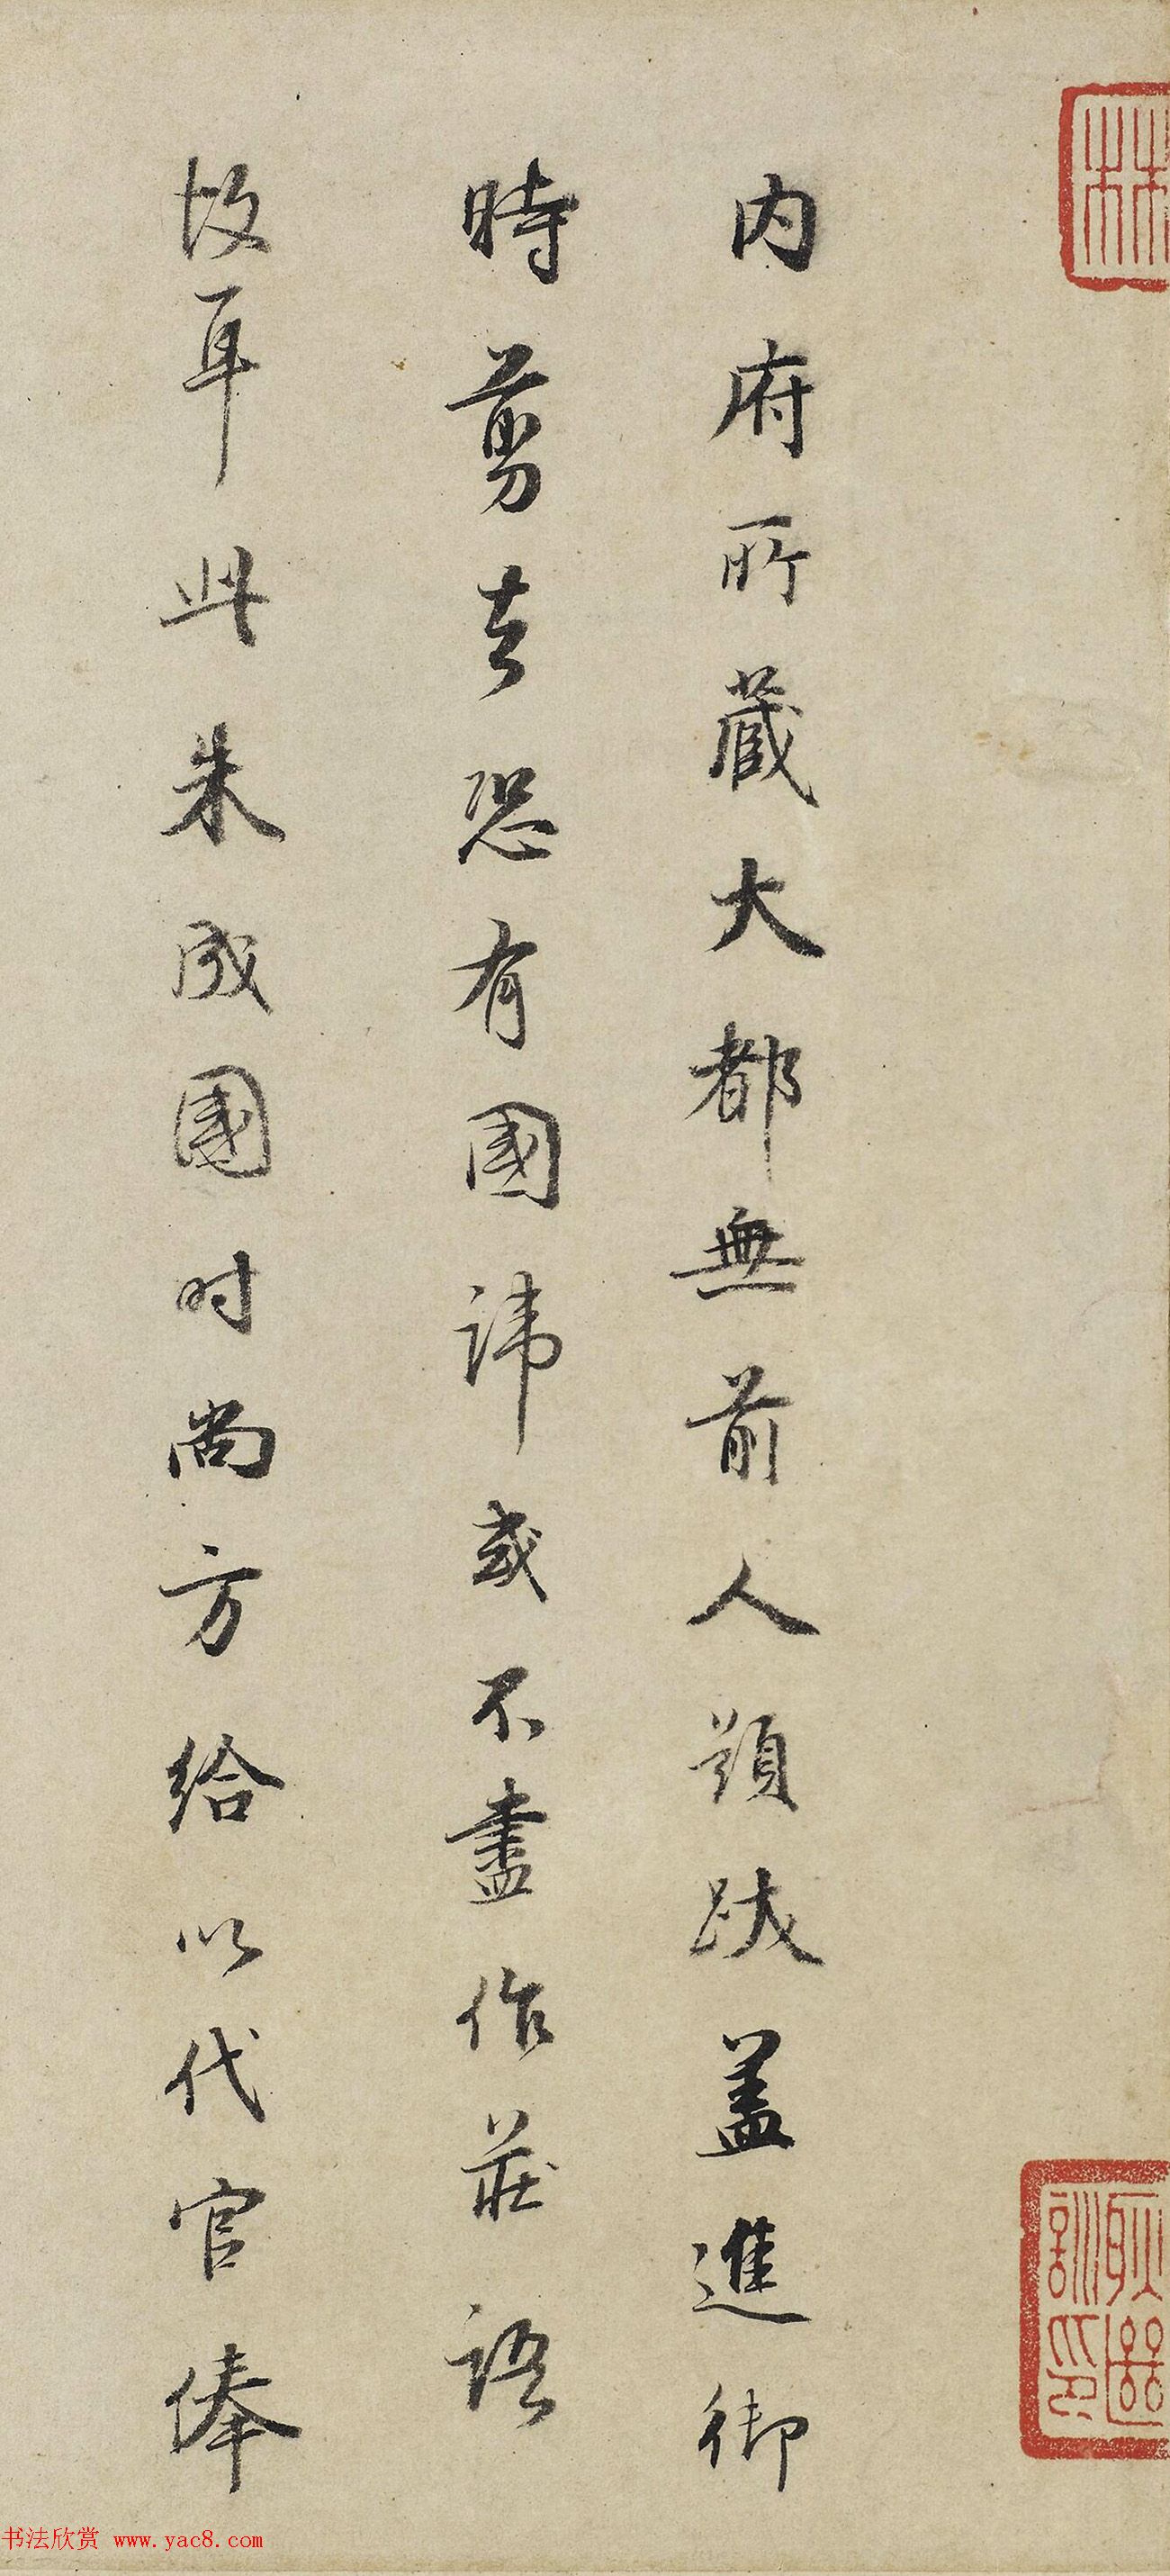 内府所藏大都無前人題跋蓋進御
時剪去恐有國諱或不盡作莊語
故耳此朱成國時尚方給以代官俸
书法欣赏 www.yac8.com